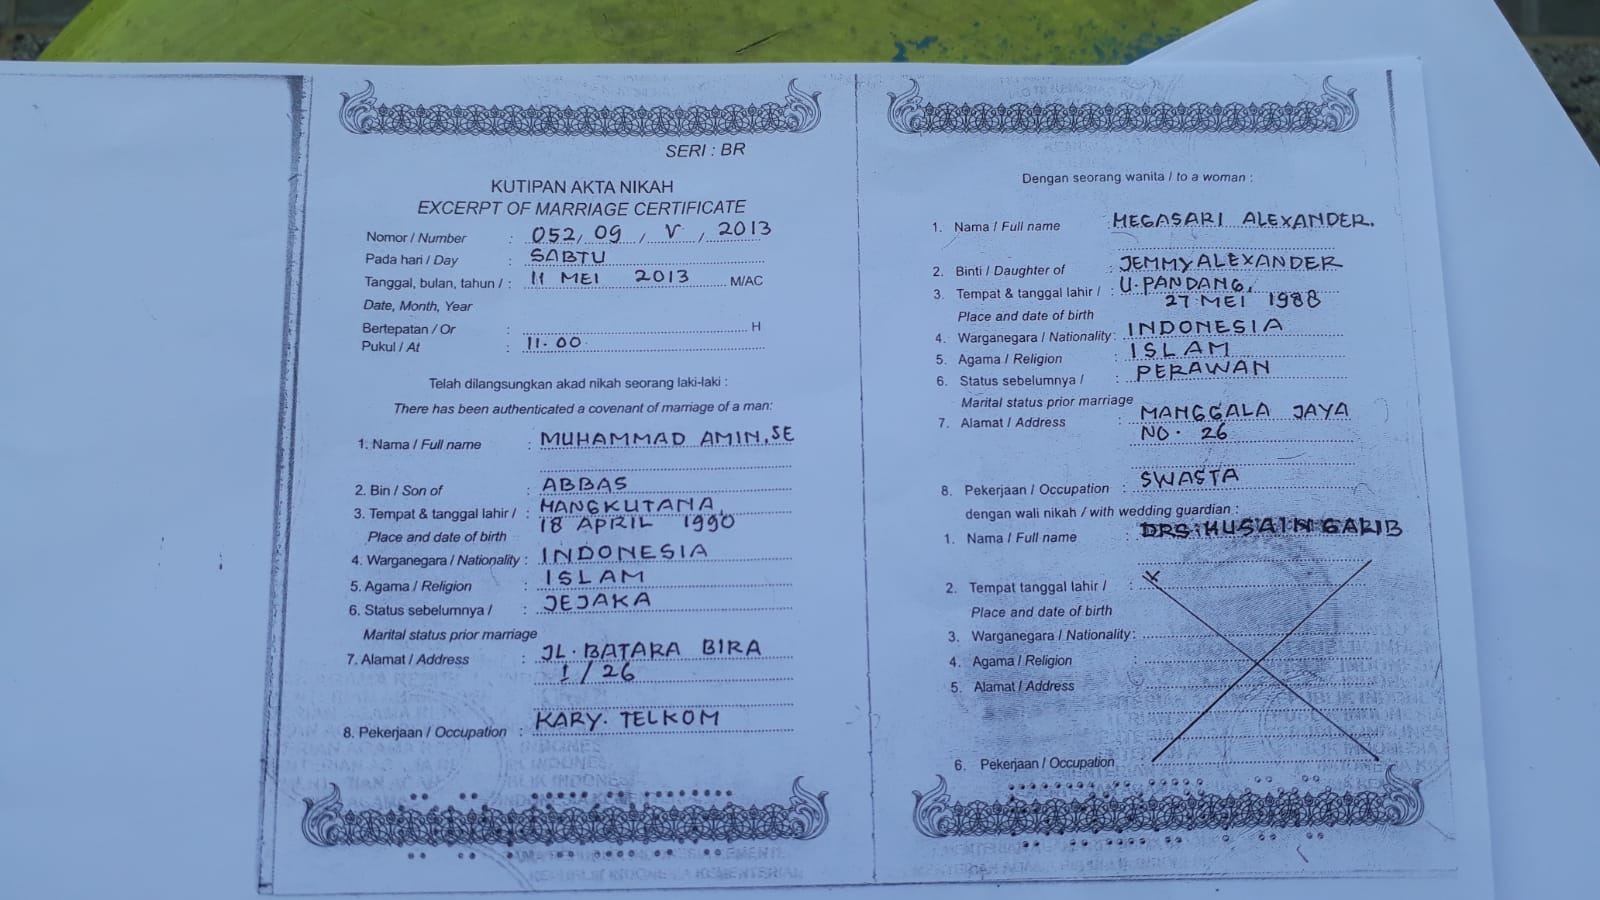 SERI : BR
KUTIPAN AKTA NIKAH
EXCERPT OF MARRIAGE CERTIFICATE
Nomor / Number : 052, 09 / V / 2013
Pada hari / Day : SABTU
Tanggal, bulan, tahun / : 11 MEI 2013 M/AC
Date, Month, Year
Bertepatan / Or : H
Pukul / At : 11.00
Telah dilangsungkan akad nikah seorang laki-laki :
There has been authenticated a covenant of marriage of a man:
1. Nama / Full name : MUHAMMAD AMIN, SE
2. Bin / Son of : ABBAS
3. Tempat & tanggal lahir / : MANGKUTANA,
18 APRIL 1990
Place and date of birth
4. Warganegara / Nationality : INDONESIA
5. Agama / Religion : ISLAM
6. Status sebelumnya / : JEJAKA
Marital status prior marriage
7. Alamat / Address : JL. BATARA BIRA
1 / 26
8. Pekerjaan / Occupation : KARY. TELKOM
Dengan seorang wanita / to a woman :
1. Nama / Full name : MEGASARI ALEXANDER.
2. Binti / Daughter of : JEMMY ALEXANDER
3. Tempat & tanggal lahir / : U. PANDANG,
27 MEI 1988
Place and date of birth
4. Warganegara / Nationality : INDONESIA
5. Agama / Religion : ISLAM
6. Status sebelumnya / : PERAWAN
Marital status prior marriage
7. Alamat / Address : MANGGALA JAYA
NO. 26
8. Pekerjaan / Occupation : SWASTA
dengan wali nikah / with wedding guardian :
1. Nama / Full name : DRS. HUSAIN GARIB
2. Tempat tanggal lahir / :
Place and date of birth
3. Warganegara / Nationality:
4. Agama / Religion :
5. Alamat / Address :
6. Pekerjaan / Occupation